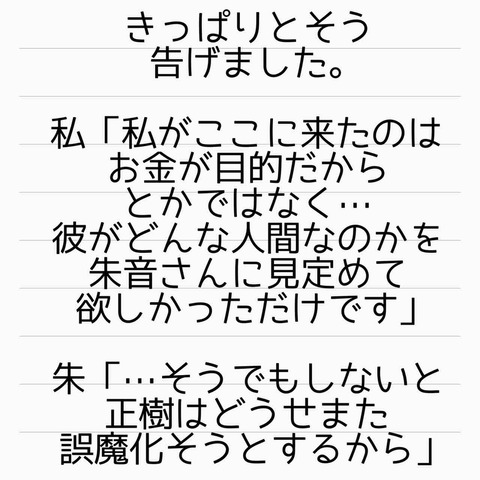 きっぱりとそう
告げました。
私「私がここに来たのは
お金が目的だから
とかではなく…
彼がどんな人間なのかを
朱音さんに見定めて
欲しかっただけです」
朱「…そうでもしないと
正樹はどうせまた
誤魔化そうとするから」